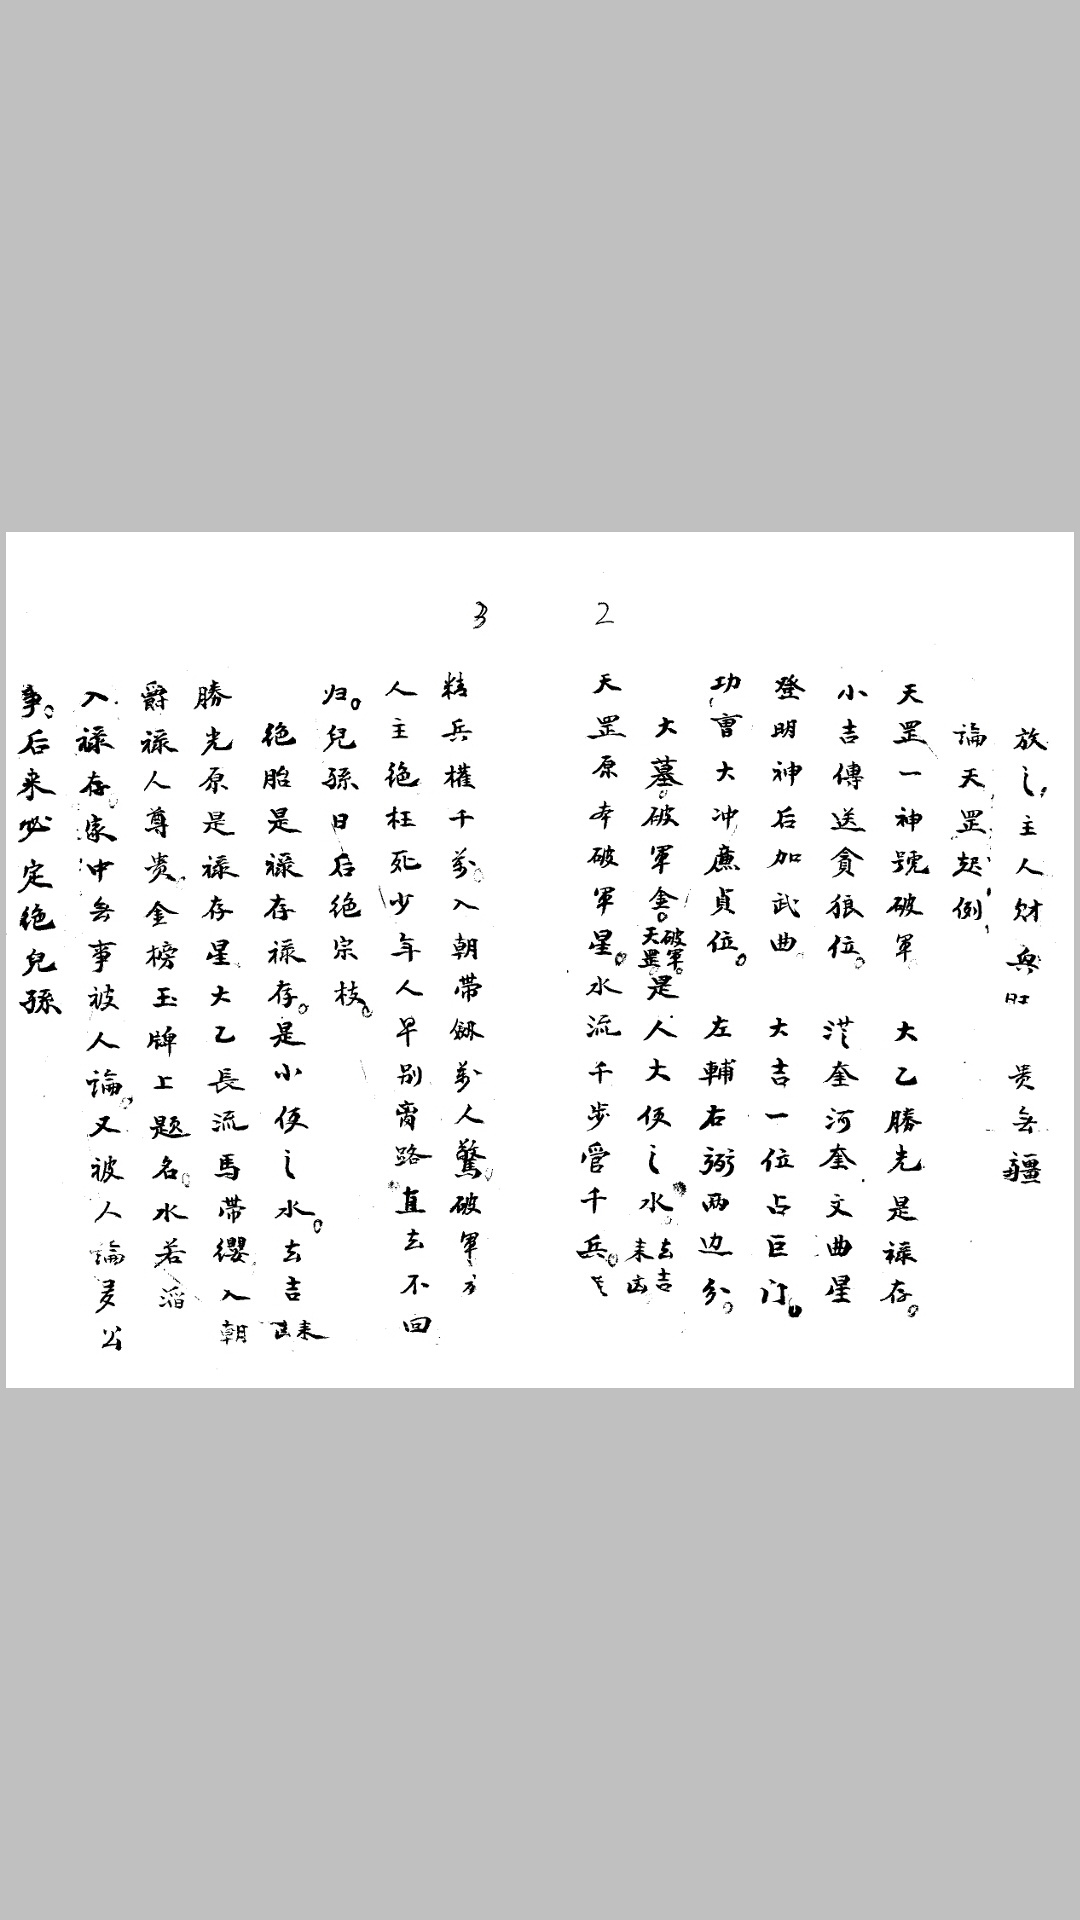 2
放之主人财興旺 贵无疆
論天罡起例
天罡一神號破軍 大乙勝光是禄存。
小吉傳送貪狼位。 奎河奎文曲星
登明神后加武曲。 大吉一位占巨门。
功曹大冲廉貞位。 左輔右弼两边分。
大墓破軍金。天罡破軍。是人大便之水 去吉来凶
天罡原本破軍星。水流千步管千兵。
3
精兵權千萬。入朝带劍萬人驚。破軍方
人主绝枉死少年人早别离路直去不回
归。兒孫日后绝宗枝。
绝胎是禄存禄存。是小便之水。去吉来凶
勝光原是禄存星。大乙長流馬带纓入朝
爵禄人尊贵。金榜玉牌上题名。水若
入禄存。家中无事被人論。又被人論多公
事。后来必定绝兒孫